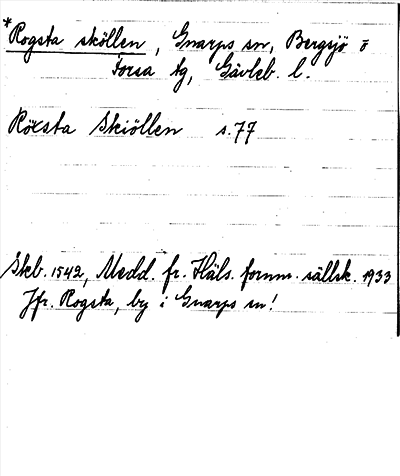 *Rogsta sköllen, Gnarps sn, Bergsjö o
Forsa tg, Gävleb. l.
Röcsta Skiöllen s. 77
Skb. 1542, Medd. fr. Häls. fornm. sällsk. 1933
Jfr. Rogsta, by i Gnarps sn!